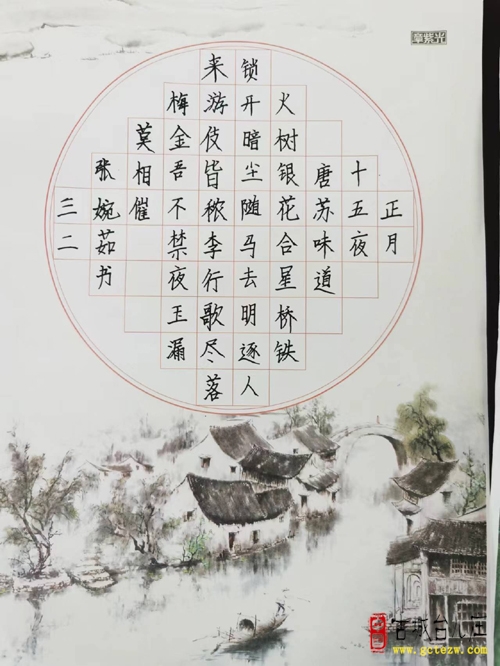 章紫光
正月
十五夜
唐苏味道
火树银花合星桥铁
锁开暗尘随马去明逐人
来游伎皆秾李行歌尽落
梅金吾不禁夜玉漏
莫相催
张婉茹书
三二
古城台儿庄
www.gctezw.com